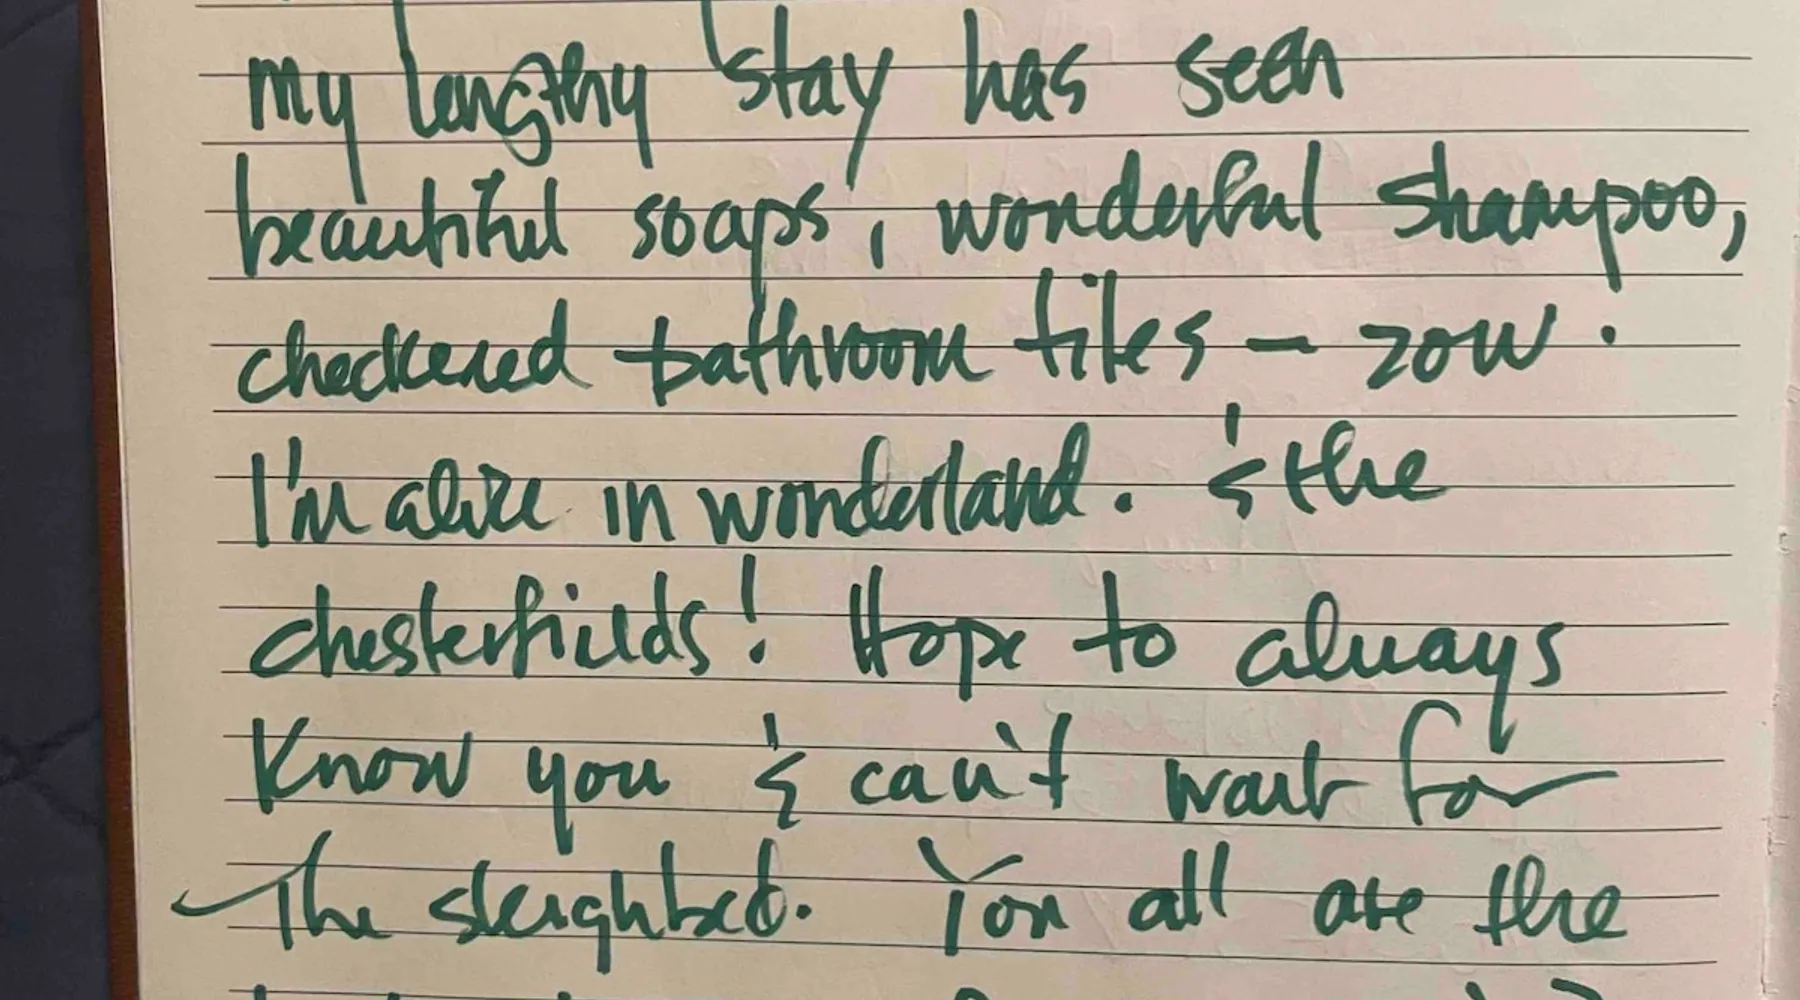 my lengthy stay has seen
beautiful soaps, wonderful shampoo,
checkered bathroom tiles - zow.
I'm alice in wonderland. & the
chesterfields! Hope to always
Know you & can't wait for
The sleighbed. You all are the